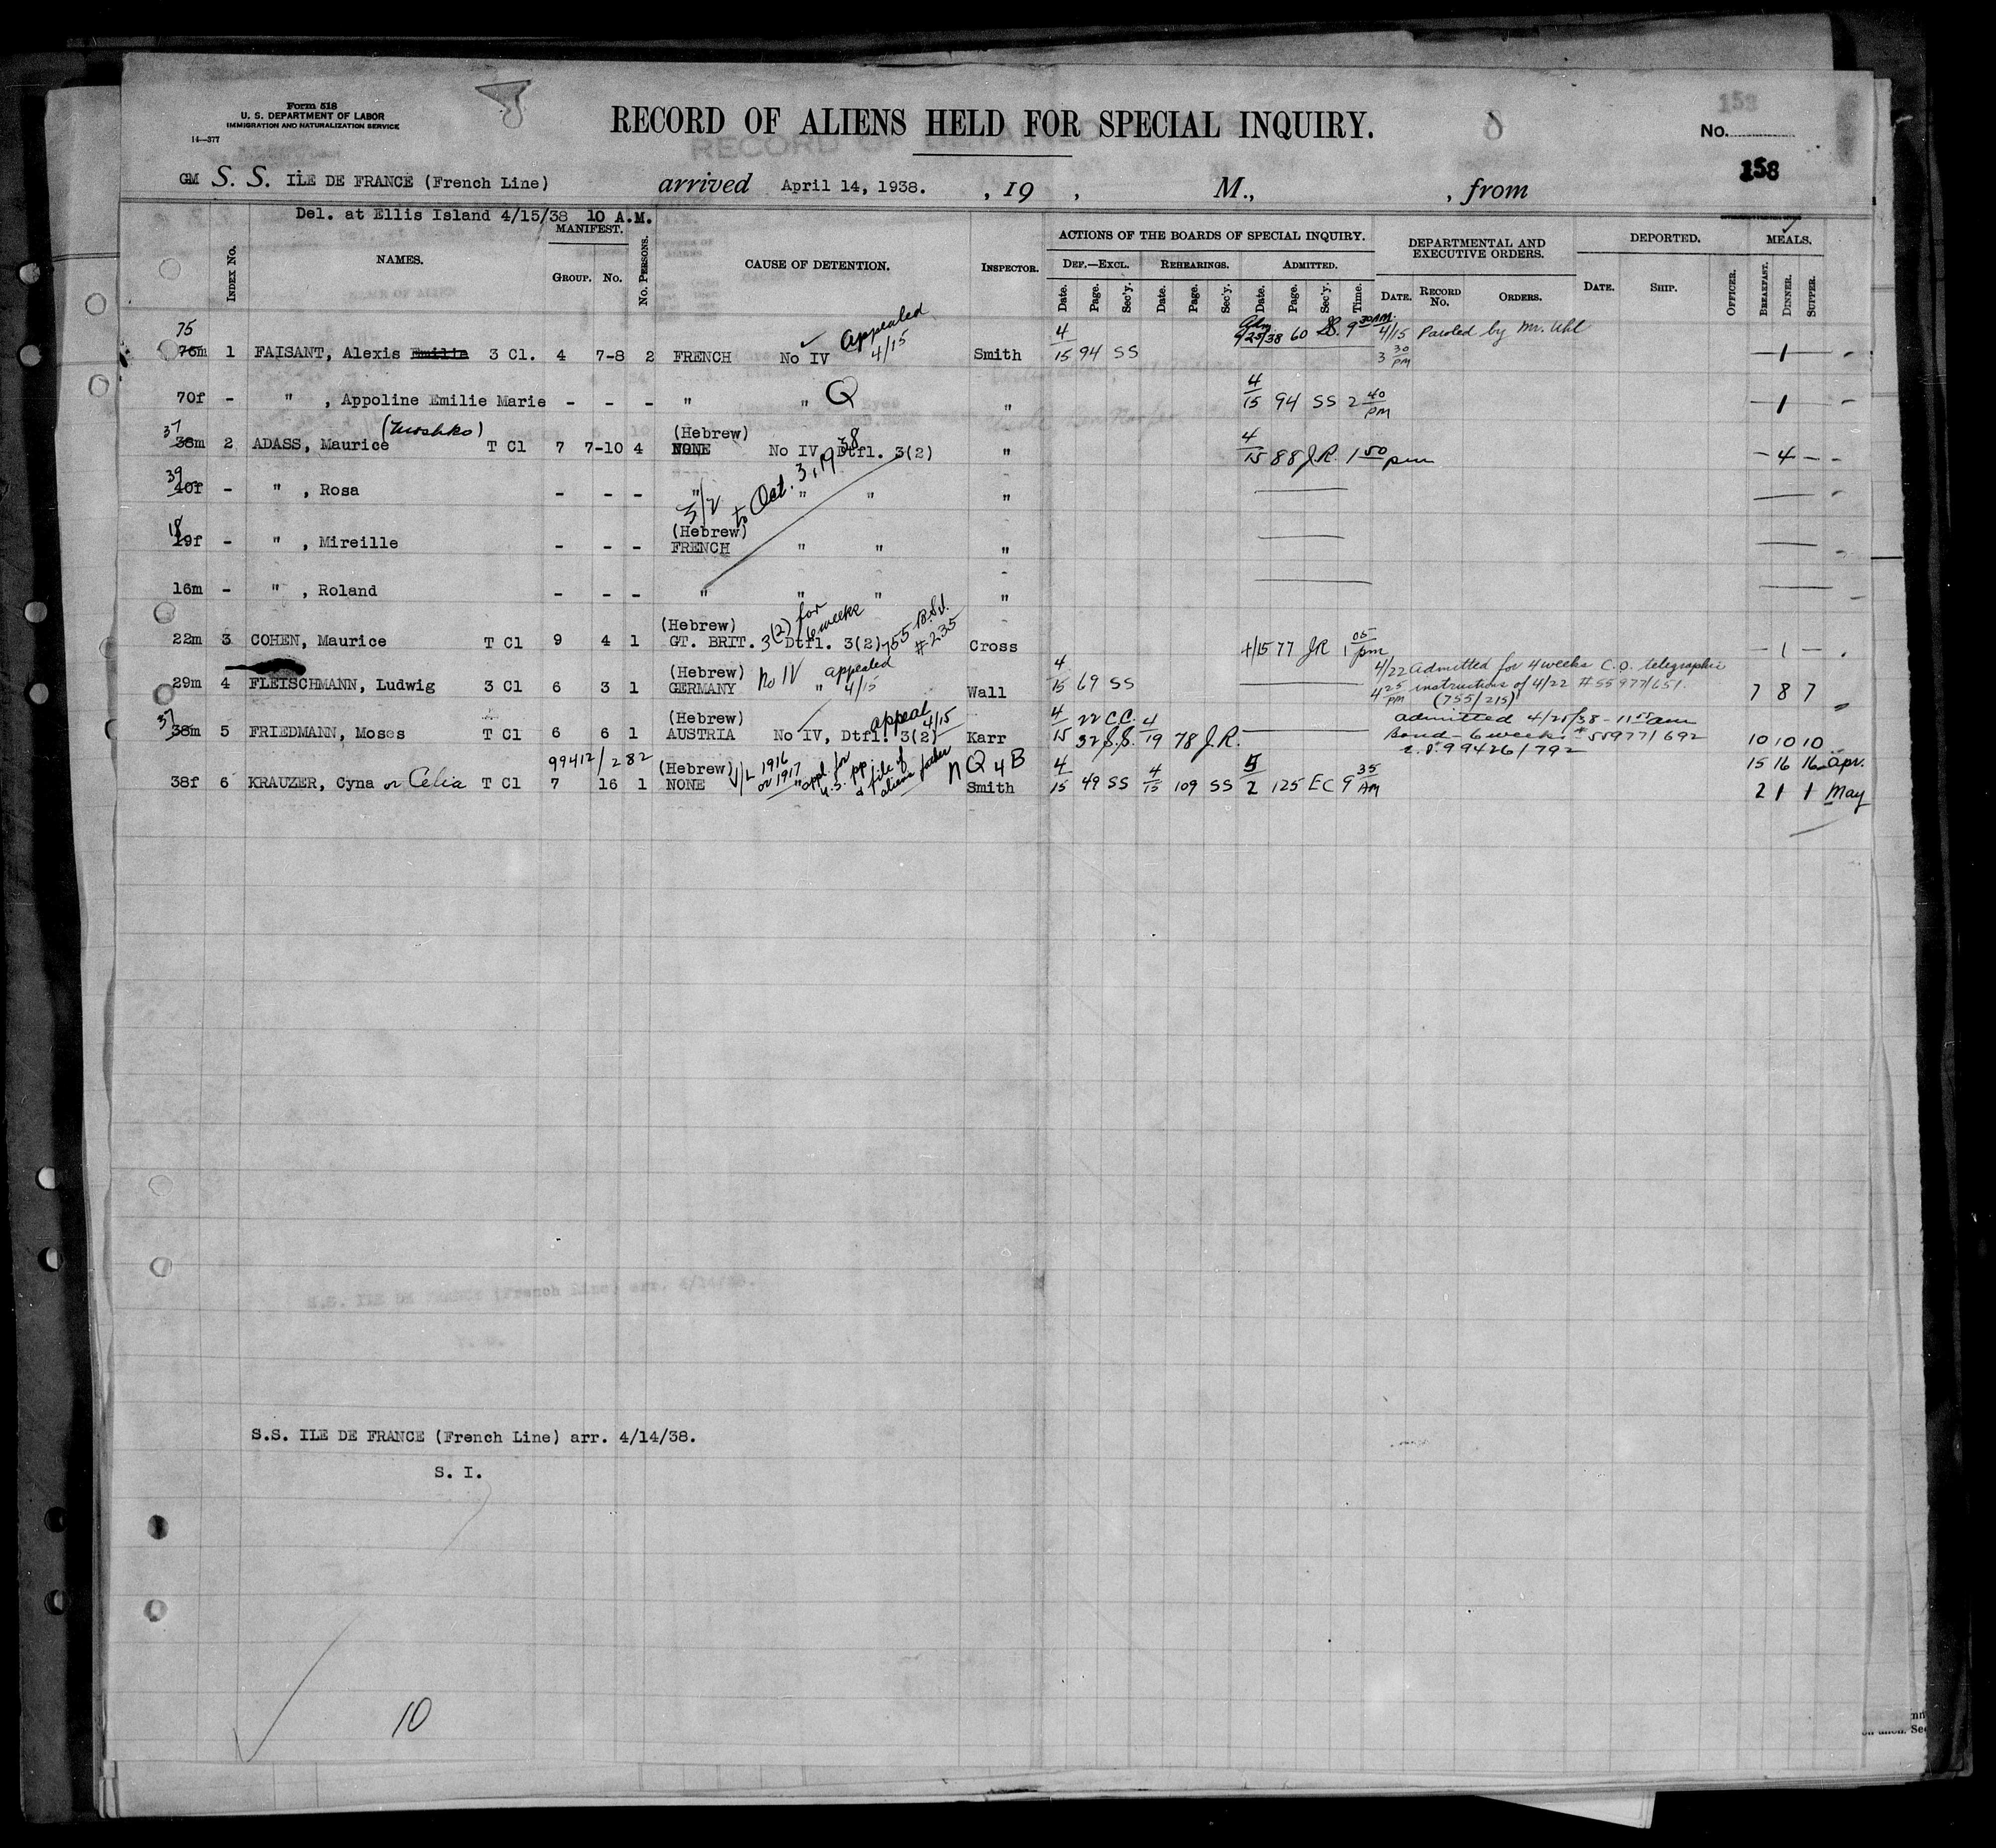 Form 518
U. S. DEPARTMENT OF LABOR
IMMIGRATION AND NATURALIZATION SERVICE
14—377
RECORD OF ALIENS HELD FOR SPECIAL INQUIRY.
No.
158
GM S. S. ILE DE FRANCE (French Line) arrived April 14, 1938. , 19 , M., , from
Del. at Ellis Island 4/15/38 10 A.M.
INDEX No. NAMES. MANIFEST. GROUP. No. No. PERSONS. CAUSE OF DETENTION. INSPECTOR. ACTIONS OF THE BOARDS OF SPECIAL INQUIRY. DEPARTMENTAL AND EXECUTIVE ORDERS. DEPORTED. MEALS.
DEF.—EXCL. REHEARINGS. ADMITTED.
Date. Page. Sec'y. Date. Page. Sec'y. Date. Page. Sec'y. Time. DATE. RECORD No. ORDERS. DATE. SHIP. OFFICER. BREAKFAST. DINNER. SUPPER.
75 Appealed 4/15 4/25/38 60 9 30 AM. 4/15 Paroled by Mr. Uhl
76m 1 FAISANT, Alexis Emilie 3 Cl. 4 7-8 2 FRENCH No IV Smith 4/15 94 SS 3 30 PM — 1 — -
70f - " , Appoline Emilie Marie - - - " " Q " 4/15 94 SS 2 40 PM — 1 — -
37 (Moshko) (Hebrew)
38m 2 ADASS, Maurice T Cl 7 7-10 4 NONE No IV, Dtfl. 3(2) " 4/15 88 J.R. 1 50 pm — 4 — -
3/2 to Oct. 3, 1938
39
40f - " , Rosa - - - " " " "
18 (Hebrew)
19f - " , Mireille - - - FRENCH " " "
16m - " , Roland - - - " " " "
(Hebrew) 3(2) for 6 weeks 755 B.S.I. #235
22m 3 COHEN, Maurice T Cl 9 4 1 GT. BRIT. Dtfl. 3(2) Cross 4/15 77 JR 1 05 pm — 1 —
(Hebrew) No IV appealed 4/15 4/22 Admitted for 4 weeks C.O. telegraphic
29m 4 FLEISCHMANN, Ludwig 3 Cl 6 3 1 GERMANY " Wall 4/15 69 SS 4 25 PM instructions of 4/22 #55977/651 7 8 7
(755/215)
37 (Hebrew) appeal 4/15 4/15 22 C.C. admitted 4/25/38 - 11 55 am
38m 5 FRIEDMANN, Moses T Cl 6 6 1 AUSTRIA No IV, Dtfl. 3(2) Karr 32 S.S. 4/19 78 J.R. Bond - 6 weeks #55977/692 10 10 10
99426/792
99412/282 (Hebrew) V/L 1916 or 1917 appl. for U.S. pp. & file of aliens father n Q 4 B 15 16 16 Apr.
38f 6 KRAUZER, Cyna or Celia T Cl 7 16 1 NONE " Smith 4/15 49 SS 4/15 109 SS 5/2 125 EC 9 35 AM 2 1 1 May
S.S. ILE DE FRANCE (French Line) arr. 4/14/38.
S. I.
10